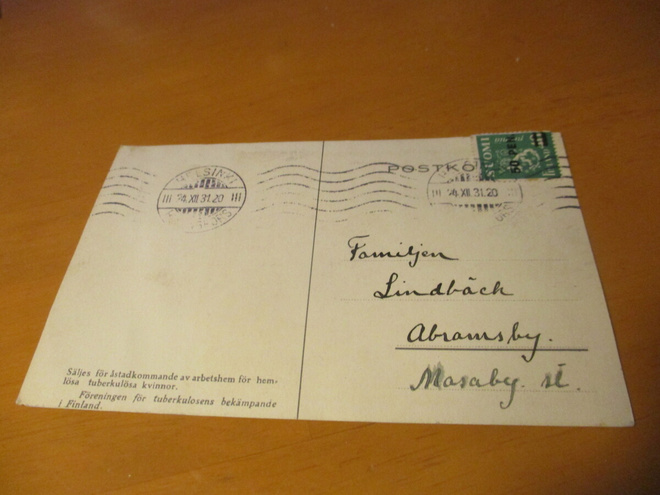 HELSINKI
24.XII.31.20
POSTKO
SUOMI
50 PEN.
24.XII.31.20
Familjen
Lindbäck
Abramsby.
Masaby. st.
Säljes för åstadkommande av arbetshem för hem-
lösa tuberkulösa kvinnor.
Föreningen för tuberkulosens bekämpande
i Finland.